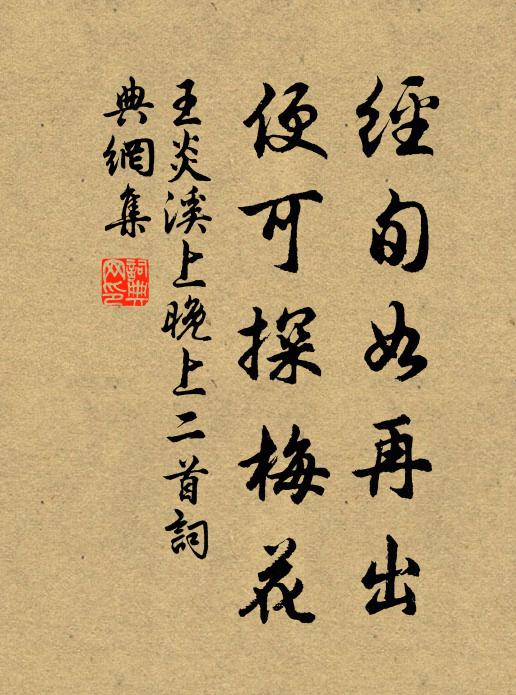 經旬如再出
便可探梅花
王炎溪上晚上二首詞
典網集
詞典网印